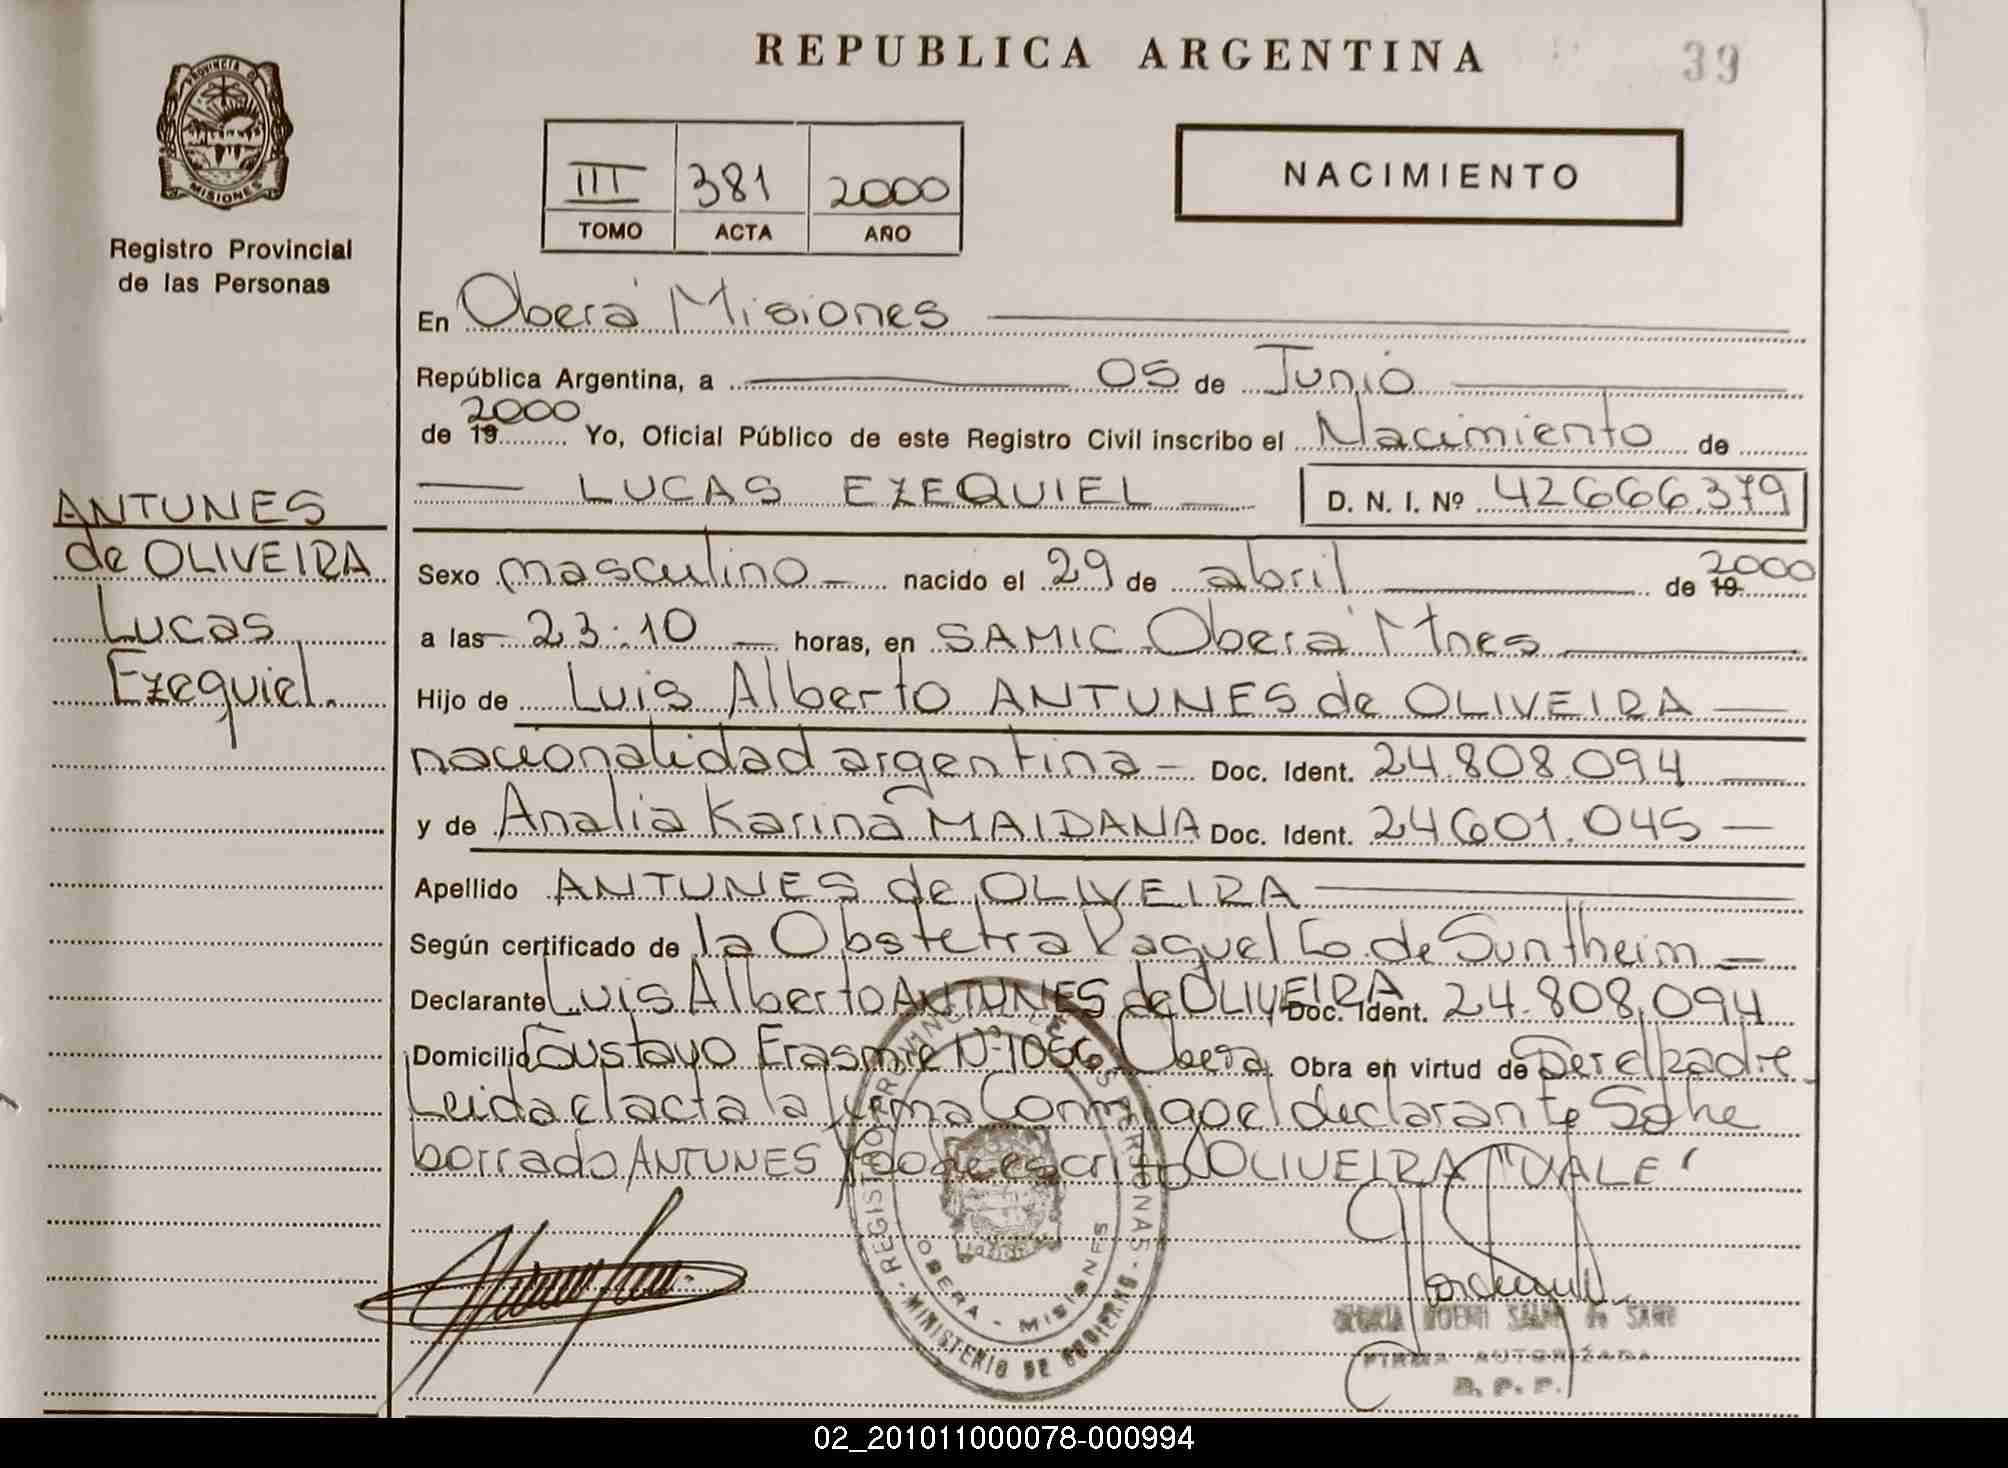 REPUBLICA ARGENTINA
39
PROVINCIA DE
MISIONES
Registro Provincial
de las Personas
III 381 2000
TOMO ACTA AÑO
NACIMIENTO
En Oberá Misiones
República Argentina, a 05 de Junio
2000
de 19 Yo, Oficial Público de este Registro Civil inscribo el Nacimiento de
LUCAS EZEQUIEL D. N. I. Nº 42666.379
ANTUNES
de OLIVEIRA
Lucas
Ezequiel.
Sexo masculino nacido el 29 de abril de 19 2000
a las 23:10 horas, en SAMIC Oberá Mnes
Hijo de Luis Alberto ANTUNES de OLIVEIRA
nacionalidad argentina Doc. Ident. 24.808.094
y de Analia Karina MAIDANA Doc. Ident. 24601.045
Apellido ANTUNES de OLIVEIRA
Según certificado de la Obstetra Raquel Co. de Suntheim
Declarante Luis Alberto ANTUNES de OLIVEIRA Doc. Ident. 24.808.094
Domicilio Gustavo Nº 1086 Oberá. Obra en virtud de Ser el padre
Leida el acta la firma Conmigo el declarante Sobre
borrado ANTUNES sobreescrito OLIVEIRA "VALE"
REGISTRO PROVINCIAL DE LAS PERSONAS
OBERA - MISIONES
MINISTERIO DE GOBIERNO
NOEMI
FIRMA AUTORIZADA
R. P. P.
02_201011000078-000994